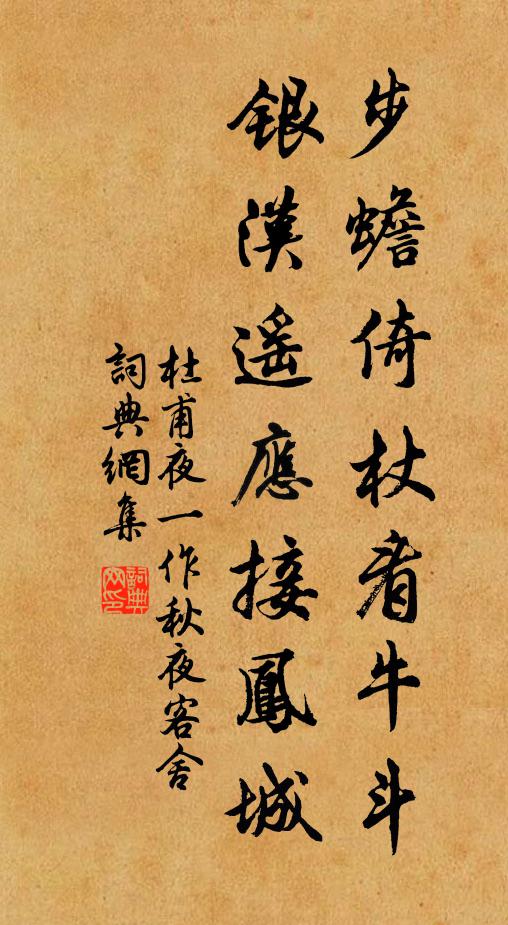 步蟾倚杖看牛斗
銀漢遥應接鳳城
杜甫夜一作秋夜客舍
詞典網集
詞典网印